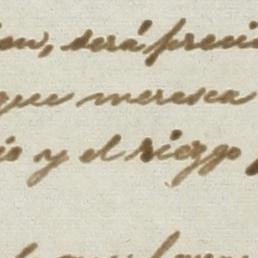 en, será preci
que meresca
io y el riezgo